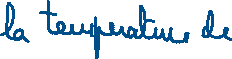 la temperature de